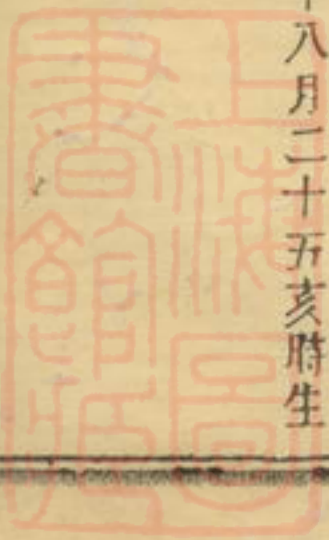 八月二十五亥時生
上海圖
書館藏